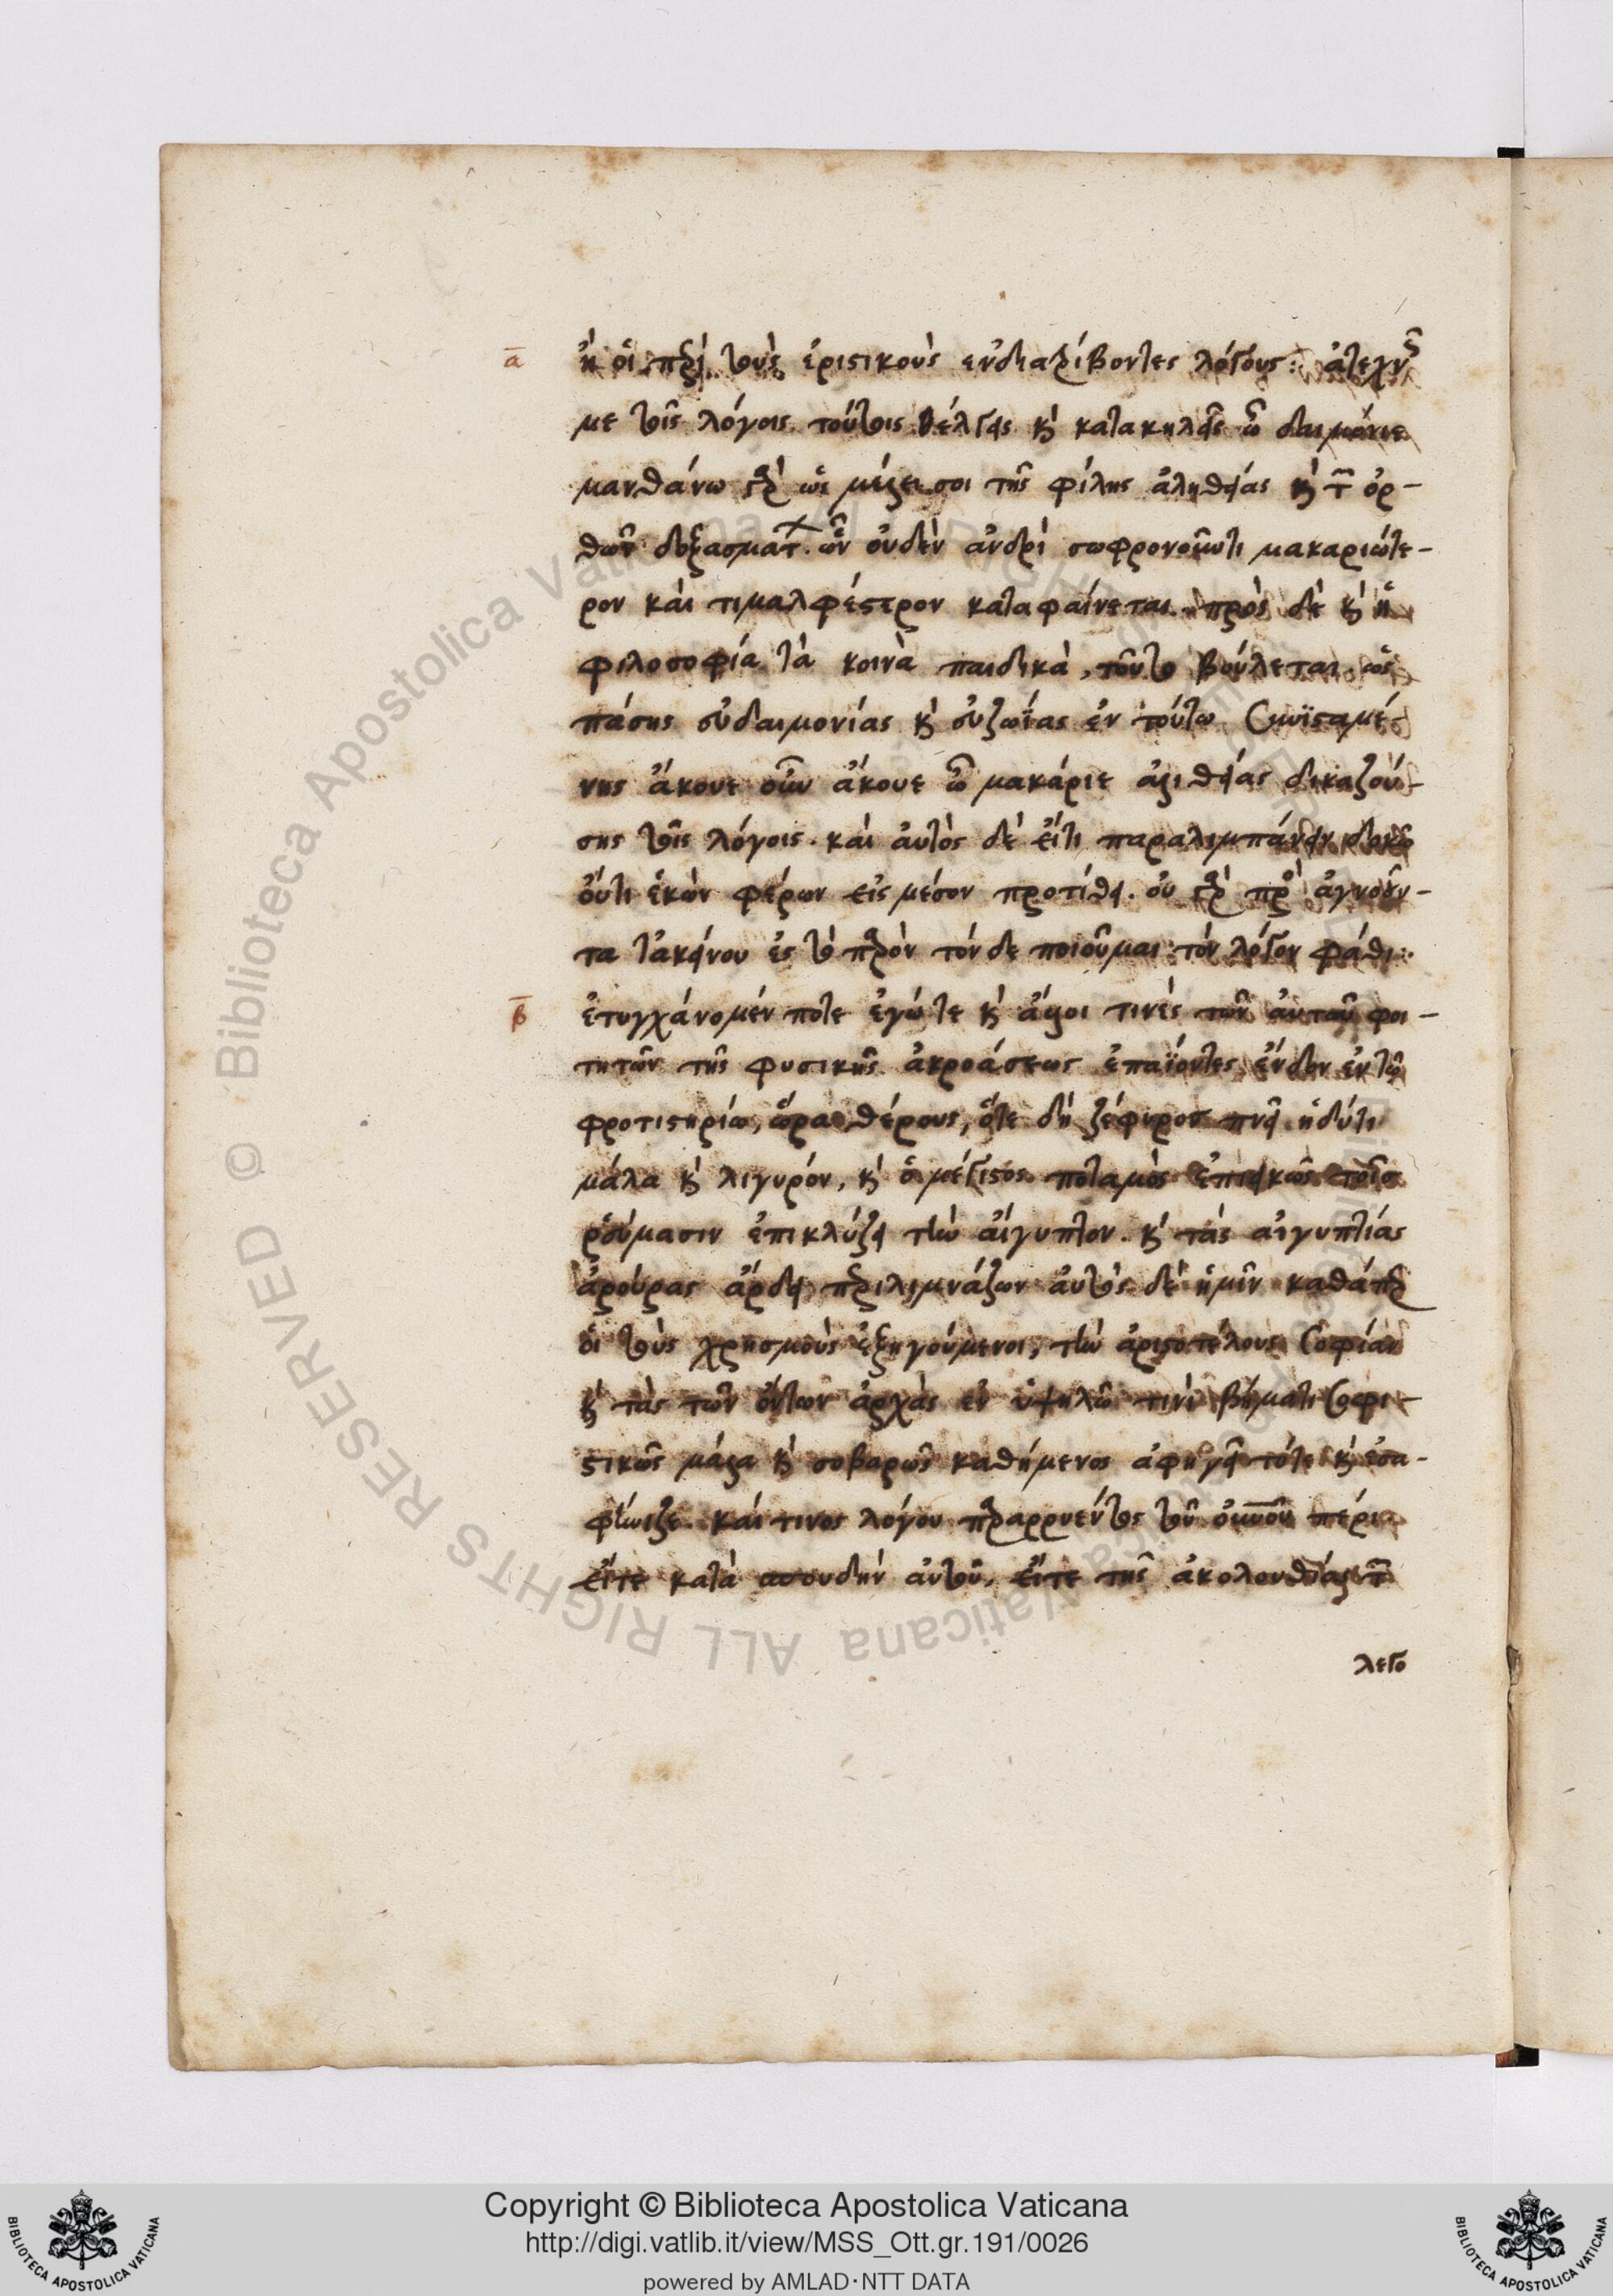 ᾱ ἢ οἱ περὶ τοὺς ἐριστικοὺς ἐνδιατρίβοντες λόγους: ἀτεχνῶς
με τοῖς λόγοις τούτοις θέλγεις καὶ κατακηλεῖς ὦ δαιμόνιε
μανθάνω γὰρ ὡς μέλει σοι τῆς φίλης ἀληθείας καὶ τῶν ὀρ-
θῶν δοξασμάτων. ὧν οὐδὲν ἀνδρὶ σωφρονοῦντι μακαριώτε-
ρον καὶ τιμαλφέστερον καταφαίνεται. πρὸς δὲ καὶ ἡ
φιλοσοφία τὰ κοινὰ παιδικὰ, τοῦτο βούλεται. ὡς
πάσης εὐδαιμονίας καὶ εὐζωΐας ἐν τούτω συνϊσταμέ-
νης ἄκουε οὖν ἄκουε ὦ μακάριε ἀληθείας δικαζού-
σης τοῖς λόγοις. καὶ αὐτὸς δὲ εἴ τι παραλιμπάνειν δοκῶ
οὔτι ἑκὼν φέρων εἰς μέσον προτίθει. οὐ γὰρ πρὸς ἀγνοοῦν-
τα τἀκείνου ἐς τὸ παρὸν τόνδε ποιοῦμαι τὸν λόγον φάθι:
β̄ ἐτυγχάνομέν ποτε ἐγώ τε καὶ ἄλλοι τινὲς τῶν αὐτοῦ φοι-
τητῶν τῆς φυσικῆς ἀκροάσεως ἐπαΐοντες ἔνδον ἐν τῶ
φροτιστηρίω, ὥρα θέρους, ὅτε δὴ ζέφυρος πνεῖ ἡδύ τι
μάλα καὶ λιγυρόν, καὶ ὁ μέγιστος ποταμὸς ἐπιεικῶς τοῖς
ῥεύμασιν ἐπικλύζει τὴν αἴγυπτον. καὶ τὰς αἰγυπτίας
ἀρούρας ἄρδει περιλιμνάζων αὐτὸς δὲ ἡμῖν καθάπερ
οἱ τοὺς χρησμοὺς ἐξηγούμενοι, τὴν ἀριστοτέλους σοφίαν
καὶ τὰς τῶν ὄντων ἀρχὰς ἐν ὑψηλῶ τινὶ βήματι σοφι-
στικῶς μάλα καὶ σοβαρῶς καθήμενος ἀφηγεῖτό τε καὶ ἐσα-
φήνιζε. καί τινος λόγου παραρρυέντος τοῦ οὐρανοῦ πέρι
εἴτε κατὰ σπουδὴν αὐτοῦ, εἴτε τῆς ἀκολουθίας τῶν
λεγο
Copyright © Biblioteca Apostolica Vaticana
http://digi.vatlib.it/view/MSS_Ott.gr.191/0026
powered by AMLAD·NTT DATA
BIBLIOTECA APOSTOLICA VATICANA
BIBLIOTECA APOSTOLICA VATICANA